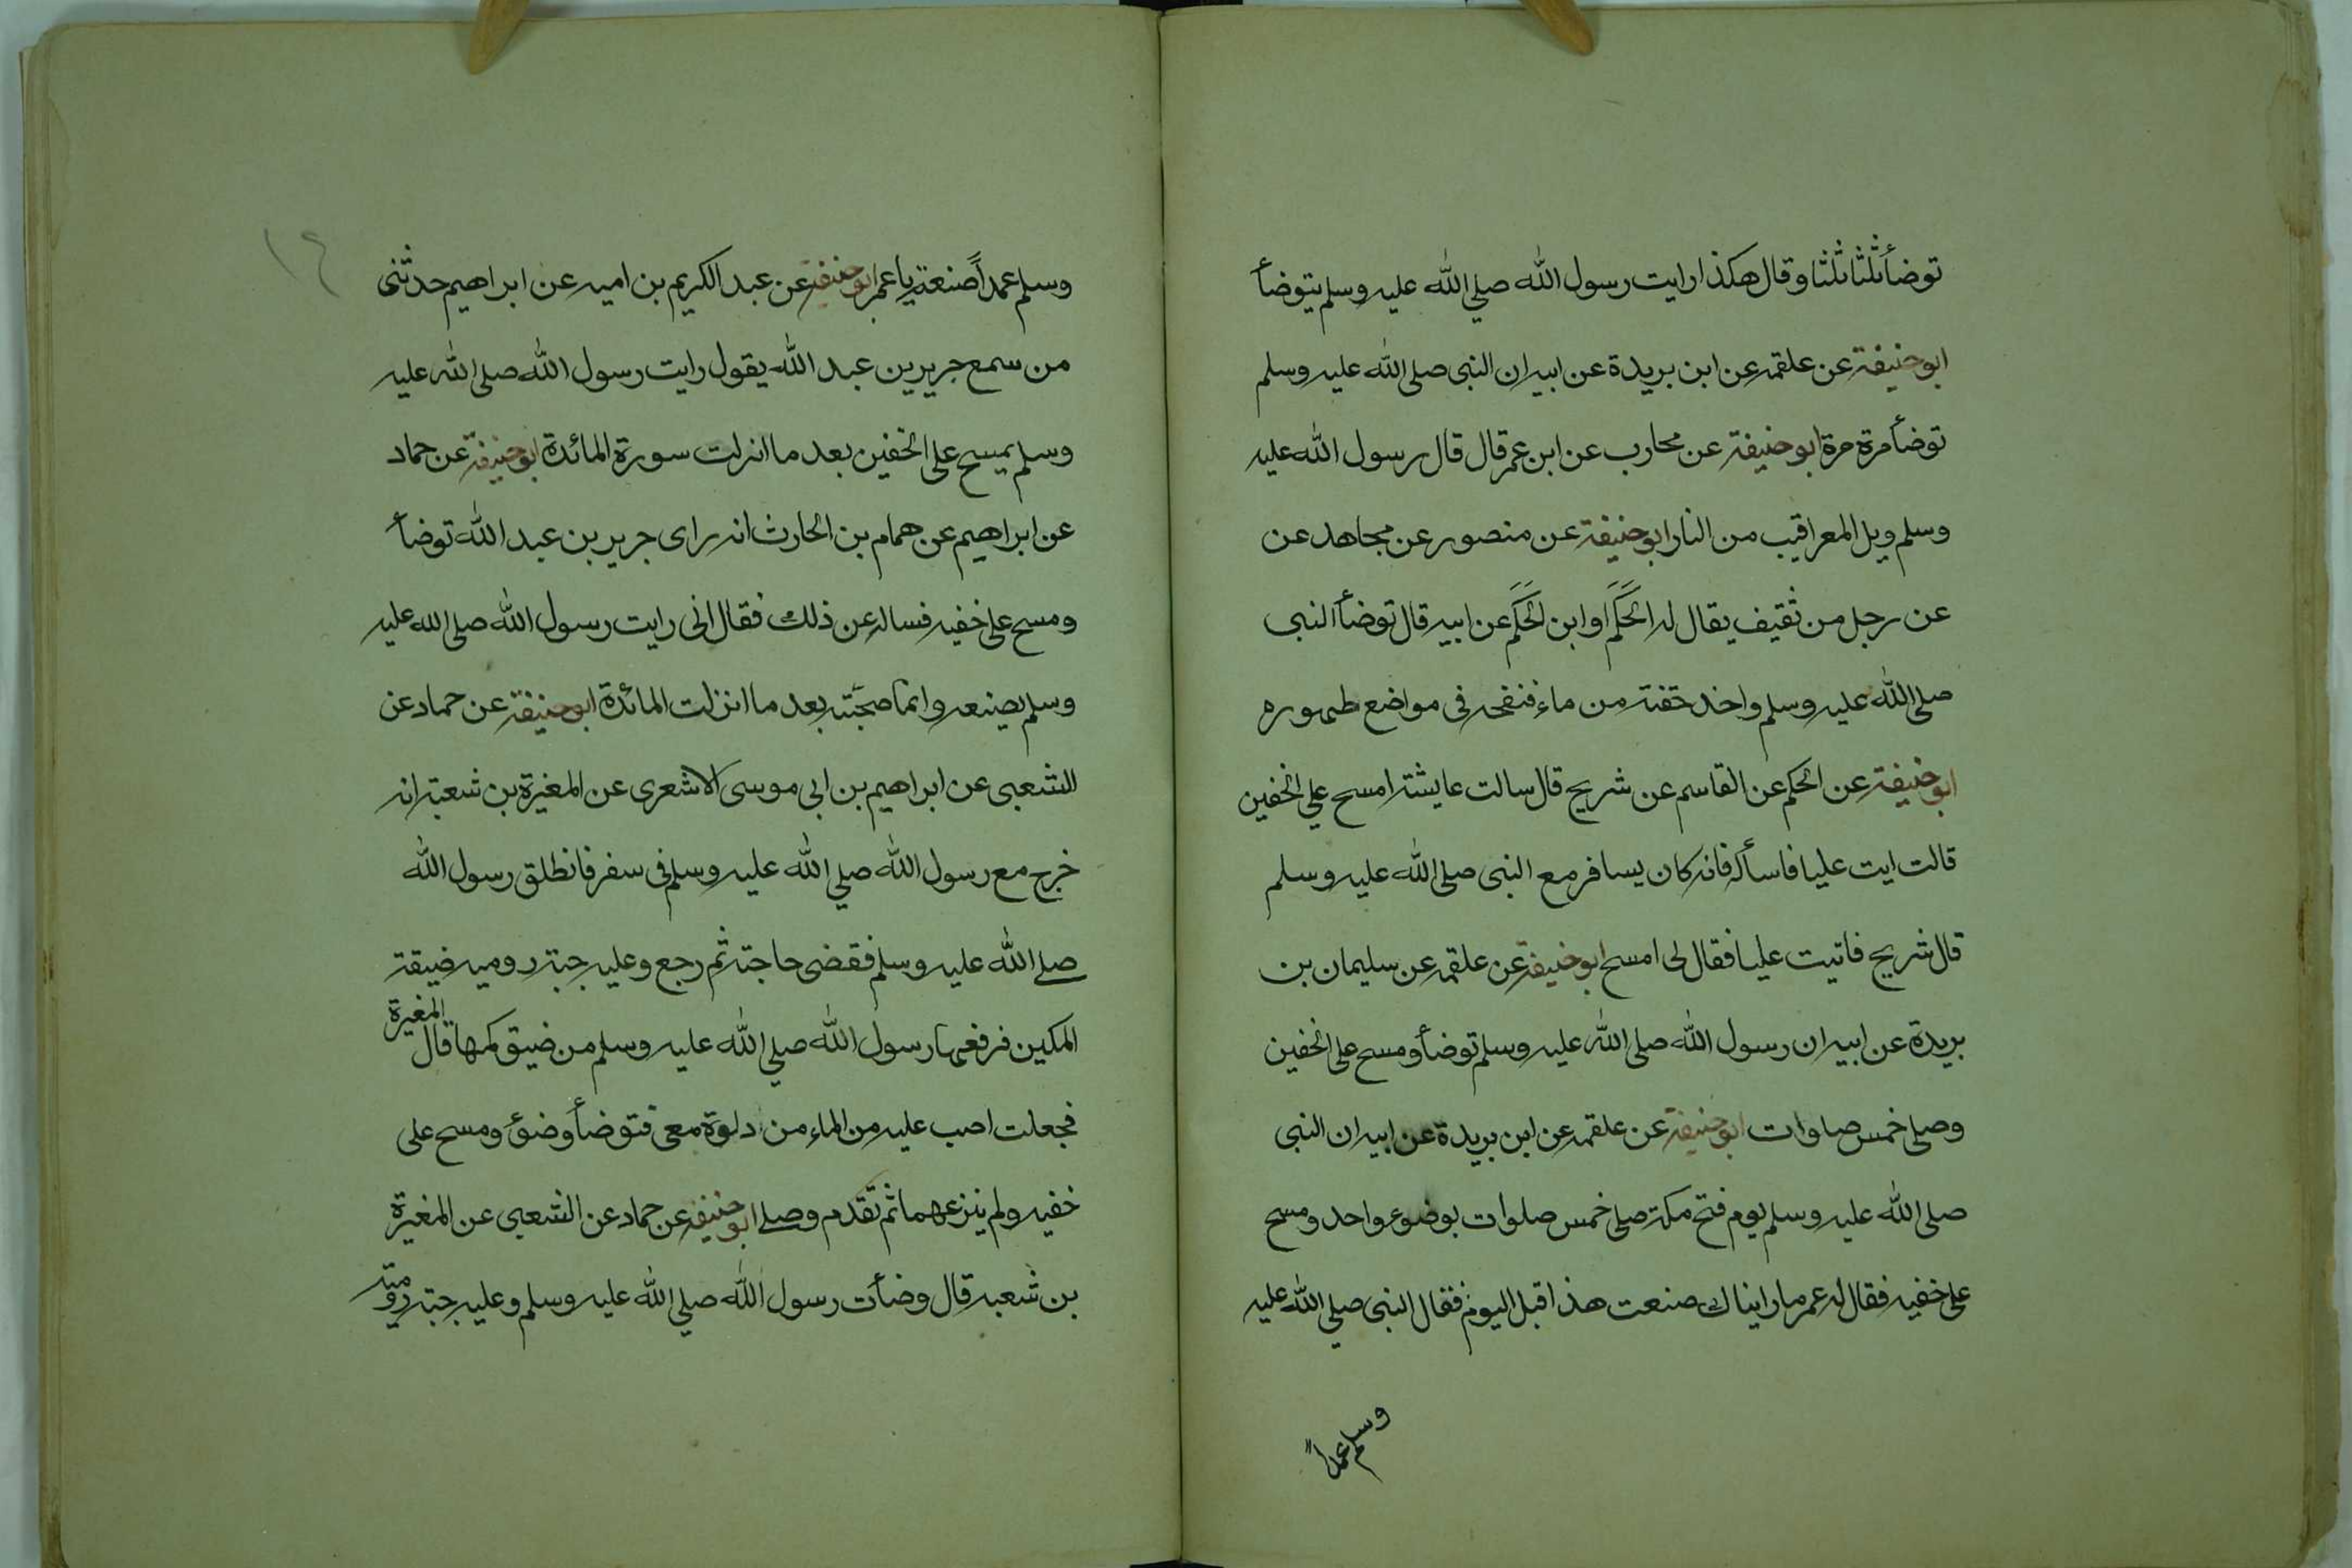 توضأ ثلثا ثلثا وقال هكذا رايت رسول الله صلي الله عليه وسلم يتوضأ
ابو حنيفة عن علقمه عن ابن بريدة عن ابيه ان النبى صلى الله عليه وسلم
توضأ مرة مرة ابو حنيفة عن محارب عن ابن عمر قال قال رسول الله عليه
وسلم ويل المعراقيب من النار ابو حنيفة عن منصور عن مجاهد عن
عن رجل من ثقيف يقال له الحَكَم او ابن الحَكَم عن ابيه قال توضأ النبى
صلى الله عليه وسلم واخد حقنة من ماء فنضحه فى مواضع طهوره
ابو حنيفة عن الحكم عن القاسم عن شريح قال سالت عايشة امسح علي الخفين
قالت ايت عليا فاسأله فانه كان يسافر مع النبى صلى الله عليه وسلم
قال شريح فاتيت عليا فقال لى امسح ابو حنيفة عن علقمه عن سليمان بن
بريدة عن ابيه ان رسول الله صلى الله عليه وسلم توضأ ومسح على الخفين
وصلى خمس صلوات ابو حنيفة عن علقمه عن ابن بريدة عن ابيه ان النبى
صلى الله عليه وسلم يوم فتح مكة صلى خمس صلوات بوضوء واحد ومسح
على خفيه فقال له عمر ما رايناك صنعت هذا قبل اليوم فقال النبى صلي الله عليه
وسلم عمداً
١٤
وسلم عمداً صنعته يا عمر ابو حنيفة عن عبد الكريم بن اميه عن ابراهيم حدثنى
من سمع جرير بن عبد الله يقول رايت رسول الله صلى الله عليه
وسلم يمسح على الخفين بعد ما انزلت سورة المائدة ابو حنيفة عن حماد
عن ابراهيم عن همام بن الحارث انه راى جرير بن عبد الله توضأ
ومسح على خفيه فساله عن ذلك فقال انى رايت رسول الله صلى الله عليه
وسلم يصنعه وانما صحبته بعد ما انزلت المائدة ابو حنيفة عن حماد عن
الشعبى عن ابراهيم بن ابى موسى الاشعرى عن المغيرة بن شعبة انه
خرج مع رسول الله صلي الله عليه وسلم فى سفر فانطلق رسول الله
صلى الله عليه وسلم فقضى حاجته ثم رجع وعليه جبة روميه ضيقة
المكين فرفعها رسول الله صلي الله عليه وسلم من ضيق كمها قال المغيرة
فجعلت اصب عليه من الماء من دلوة معى فتوضأ وضوء ومسح على
خفيه ولم ينزعهما ثم تقدم وصلى ابو حنيفه عن حماد عن الشعبى عن المغيرة
بن شعبه قال وضأت رسول الله صلي الله عليه وسلم وعليه جبة رومية